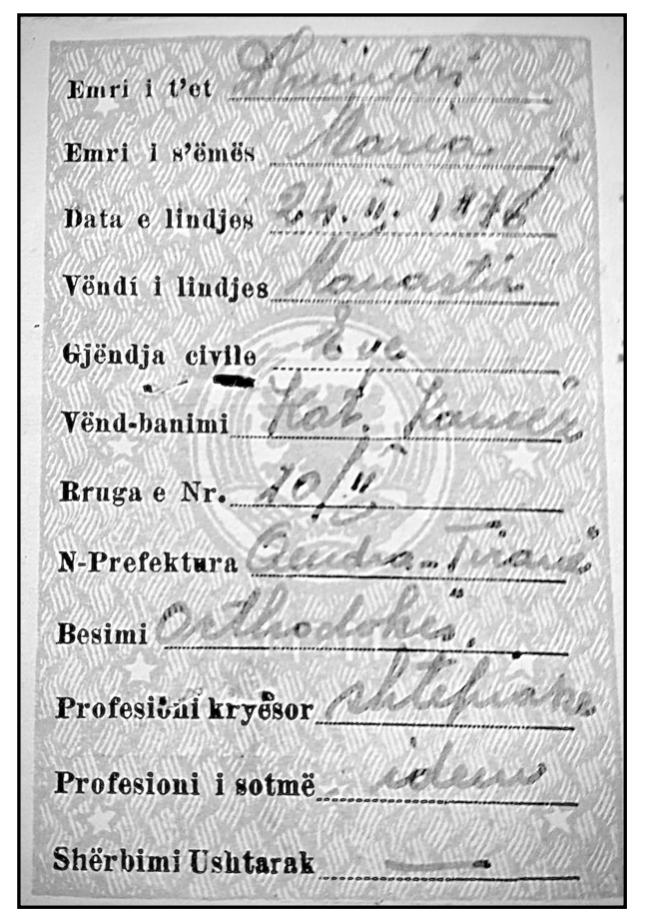 Emri i t'et Dhimitri
Emri i s'ëmës Maria
Data e lindjes 24. II. 1876
Vëndi i lindjes Manastir
Gjëndja civile E ve
Vënd-banimi Kat. Kamëz
Rruga e Nr. 70/II
N-Prefektura Qendra-Tiranë
Besimi Orthodokse,
Profesioni kryësor shtëpiake
Profesioni i sotmë idem
Shërbimi Ushtarak —